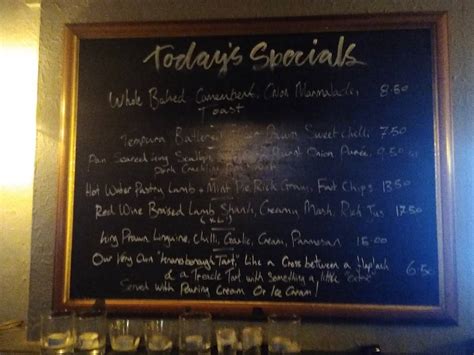 Today's Specials
Whole Baked Camembert, Onion Marmalade, 8.50
Toast
Tempura Batter Prawn Sweet chilli, 7.50
Pan Seared King Onion Purée, 9.50
Pork
Hot Water Pastry Lamb + Mint Pie Rich Gravy, Fat Chips 13.50
Red Wine Braised Lamb Shank, Creamy Mash, Rich Jus 17.50
King Prawn Linguine, Chilli, Garlic, Cream, Parmesan 15.00
Our Very Own "Knaresborough Tart", Like a Cross between a Flapjack
& a Treacle Tart with Something a little "extra" 6.50
Served with Pouring Cream Or Ice Cream!